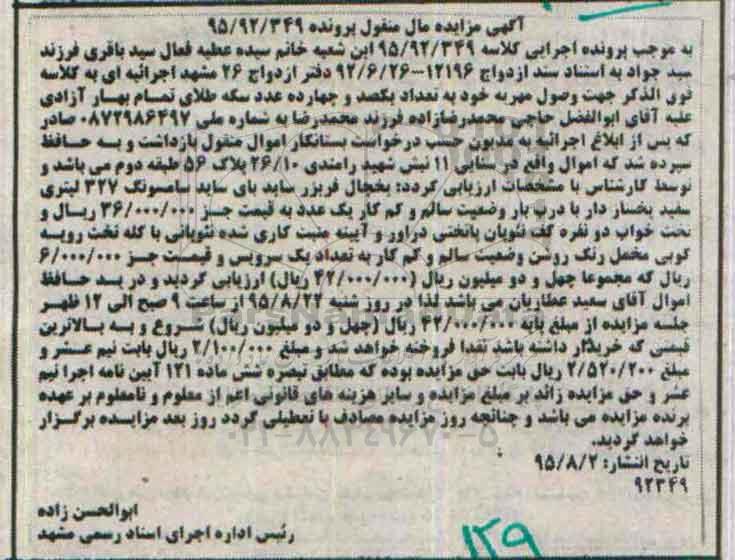 آگهی مزایده مال منقول پرونده ۹۵/۹۲/۳۴۹
به موجب پرونده اجرایی کلاسه ۹۵/۹۲/۳۴۹ ابن شعبه خانم سیده عطیه فعال سید باقری فرزند
سید جواد به استناد سند ازدواج ۱۲۱۹۶-۹۲/۶/۲۶ دفتر ازدواج ۲۶ مشهد اجرائیه ای به کلاسه
فوق الذکر جهت وصول مهریه خود به تعداد یکصد و چهارده عدد سکه طلای تمام بهار آزادی
علیه آقای ابوالفضل حاجی محمدرضازاده فرزند محمدرضا به شماره ملی ۰۸۷۲۹۸۶۴۹۷ صادر
که پس از ابلاغ اجرائیه به مدیون حسب درخواست بستانکار اموال منقول بازداشت و به حافظ
سپرده شد که اموال واقع در سنایی ۱۱ نبش شهید رامندی ۲۶/۱۰ پلاک ۵۶ طبقه دوم می باشد و
توسط کارشناس با مشخصات ارزیابی گردد: یخچال فریزر ساید بای ساید سامسونگ ۳۲۷ لیتری
سفید یخساز دار با درب بار وضعیت سالم و کم کار یک عدد به قیمت جز ۳۶/۰۰۰/۰۰۰ ریال و
تخت خواب دو نفره کف نئوپان پاتختی دراور و آیینه منبت کاری شده نئوپانی با کله تخت رویه
کوبی مخمل رنگ روشن وضعیت سالم و کم کار به تعداد یک سرویس و قیمت جز ۶/۰۰۰/۰۰۰
ریال که مجموعا چهل و دو میلیون ریال (۴۲/۰۰۰/۰۰۰ ریال) ارزیابی گردید و در ید حافظ
اموال آقای سعید عطاریان می باشد لذا در روز شنبه ۹۵/۸/۲۲ از ساعت ۹ صبح الی ۱۲ ظهر
جلسه مزایده از مبلغ پایه ۴۲/۰۰۰/۰۰۰ ریال (چهل و دو میلیون ریال) شروع و به بالاترین
قیمتی که خریدار داشته باشد نقدا فروخته خواهد شد و مبلغ ۲/۱۰۰/۰۰۰ ریال بابت نیم عشر و
مبلغ ۲/۵۲۰/۲۰۰ ریال بابت حق مزایده بوده که مطابق تبصره شش ماده ۱۲۱ آیین نامه اجرا نیم
عشر و حق مزایده زائد بر مبلغ مزایده و سایر هزینه های قانونی اعم از معلوم و نامعلوم بر عهده
برنده مزایده می باشد و چنانچه روز مزایده مصادف با تعطیلی گردد روز بعد مزایده برگزار
خواهد گردید.
تاریخ انتشار: ۹۵/۸/۲
۹۲۳۴۹
ابوالحسن زاده
رئیس اداره اجرای اسناد رسمی مشهد
۱۲۹
ParsNamadData
۰۲۱-۸۸۳۴۹۶۷۰-۵